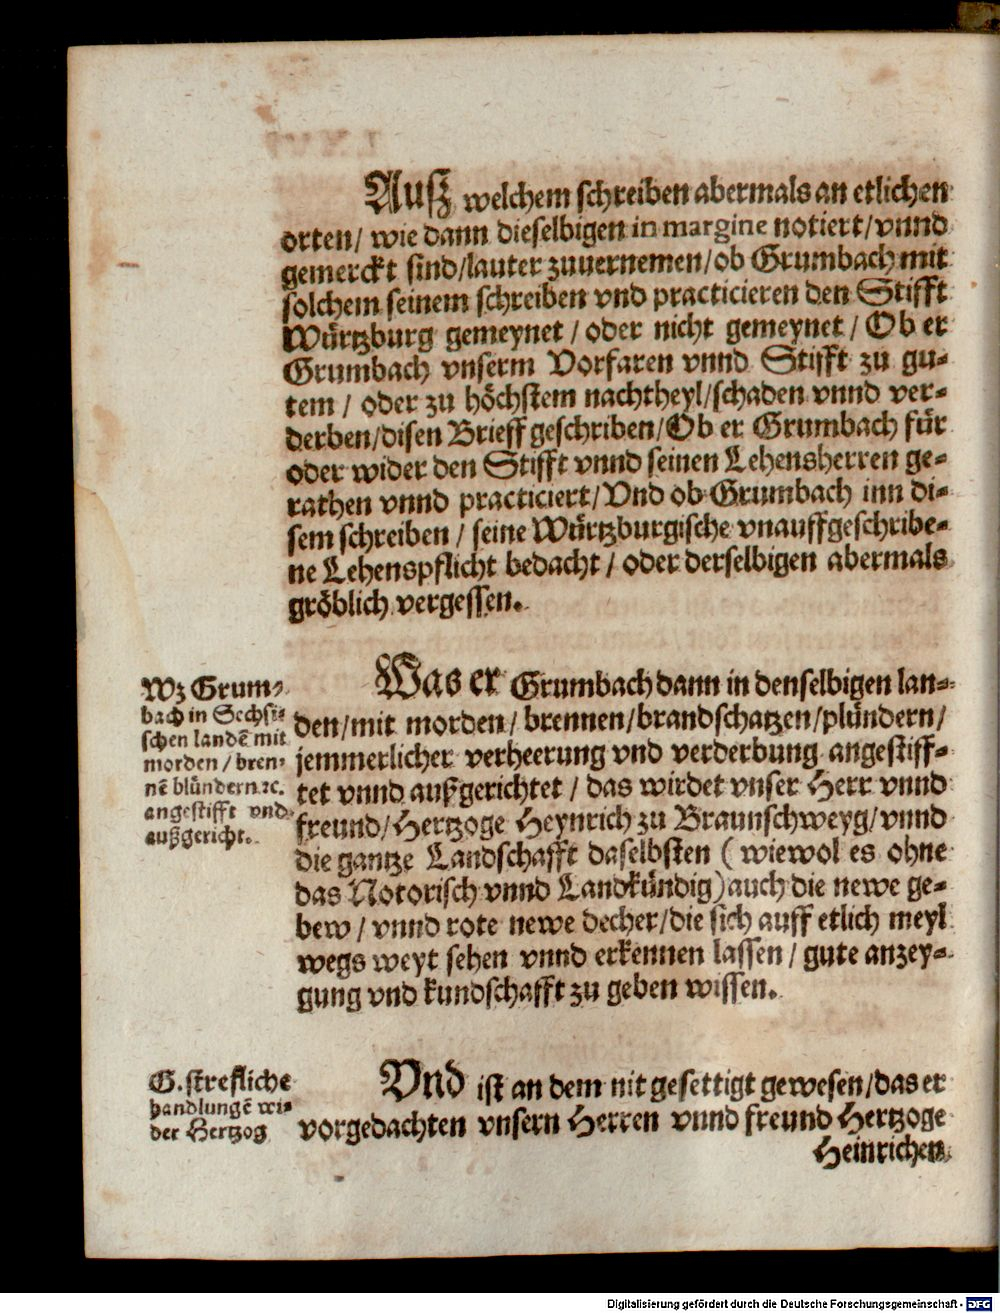 Ausz welchem schreiben abermals an etlichen
orten/ wie dann dieselbigen in margine notiert/ vnnd
gemerckt sind/lauter zuuernemen/ ob Grumbach mit
solchem seinem schreiben vnd practicieren den Stifft
Würtzburg gemeynet / oder nicht gemeynet / Ob er
Grumbach vnserm Vorfaren vnnd Stifft zu gu-
tem / oder zu höchstem nachtheyl/schaden vnnd ver-
derben/disen Brieff geschriben/Ob er Grumbach für
oder wider den Stifft vnnd seinen Lehensherren ge-
rathen vnnd practiciert/ Vnd ob Grumbach inn di-
sem schreiben / seine Würtzburgische vnauffgeschribe-
ne Lehenspflicht bedacht / oder derselbigen abermals
gröblich vergessen.
Wz Grum-
bach in Sechsi-
schen landē mit
morden / bren-
nē blündern ꝛc.
angestifft vnd
außgericht.
Was er Grumbach dann in denselbigen lan-
den/mit morden/ brennen/brandschatzen/plündern/
jemmerlicher verheerung vnd verderbung angestiff-
tet vnnd außgerichtet / das wirdet vnser Herr vnnd
freund/ Hertzoge Heynrich zu Braunschweyg/ vnnd
die gantze Landschafft daselbsten ( wiewol es ohne
das Notorisch vnnd Landkündig) auch die newe ge-
bew / vnnd rote newe decher/die sich auff etlich meyl
wegs weyt sehen vnnd erkennen lassen / gute anzey-
gung vnd kundschafft zu geben wissen.
G. strefliche
handlungē wi-
der Hertzog
Vnd ist an dem nit gesettigt gewesen/das er
vorgedachten vnsern Herren vnnd freund Hertzoge
Heinrichen
Digitalisierung gefördert durch die Deutsche Forschungsgemeinschaft - DFG